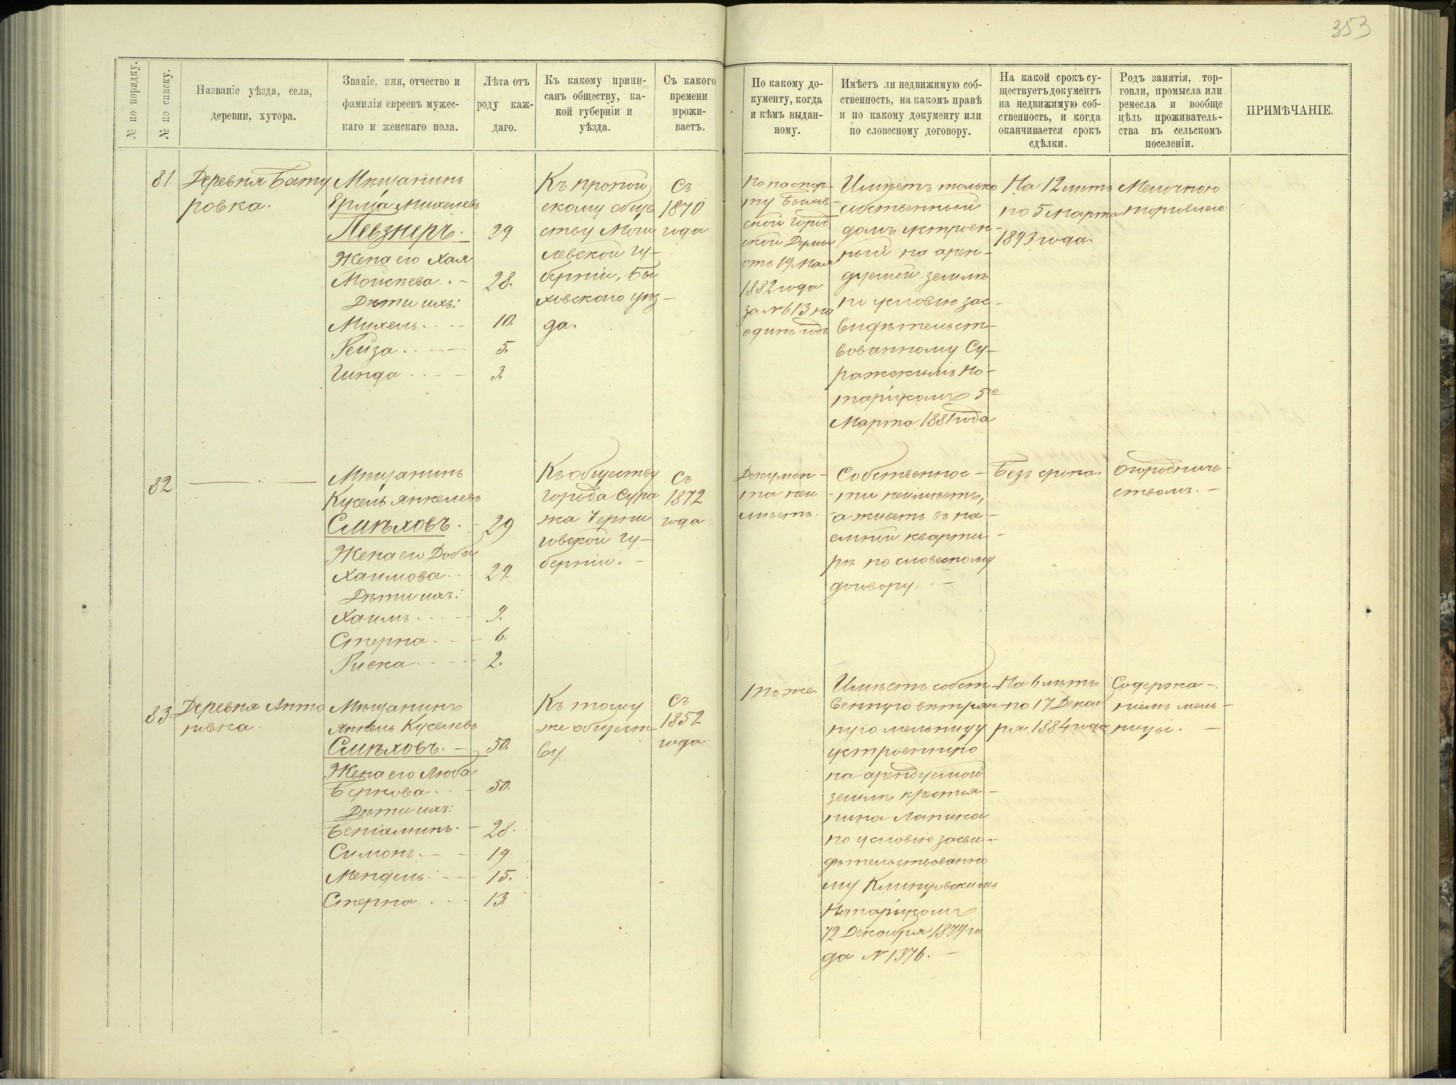 353
№ по порядку.
№ по списку.
Названіе уѣзда, села,
деревни, хутора.
Званіе, имя, отчество и
фамилія евреевъ мужес-
каго и женскаго пола.
Лѣта отъ
роду каж-
даго.
Къ какому припи-
санъ обществу, ка-
кой губерніи и
уѣзда.
Съ какого
времени
прожи-
ваетъ.
По какому до-
кументу, когда
и кѣмъ выдан-
ному.
Имѣетъ ли недвижимую соб-
ственность, на какомъ правѣ
и по какому документу или
по словесному договору.
На какой срокъ су-
ществуетъ документъ
на недвижимую соб-
ственность, и когда
оканчивается срокъ
сдѣлки.
Родъ занятія, тор-
говли, промысла или
ремесла и вообще
цѣль проживатель-
ства въ сельскомъ
поселеніи.
ПРИМѢЧАНІЕ.
81
Деревня Бату
ровка.
Мѣщанинъ
Ерма Михелевъ
Певзнеръ. 29
Жена его Хая
Моисѣева. 28.
Дѣти ихъ:
Михель 10.
Гейза 5.
Гинда 3.
Къ пропой
скому обще
ству Моги
левской гу-
берніи, Бы
ховскаго уѣз-
да.
Съ
1870
года
По паспор-
ту Быхов-
ской Город
ской Думы
отъ 19 Мая
1882 года
за № 613 на
одинъ годъ
Имѣетъ только
собственный
домъ устроен-
ный на арен-
дуемой землѣ
по условію зас-
видѣтельст-
вованному Су-
ражскимъ Но-
таріусомъ 5го
Марта 1881 года
На 12 лѣтъ
по 5 Марта
1893 года.
Мелочною
торговлею
82
Мѣщанинъ
Кусель Янкелевъ
Смѣховъ. 29
Жена его Доба
Хаимова 29.
Дѣти ихъ:
Хаимъ 9.
Стерна 6.
Ривка 2.
Къ обществу
города Сура
жа Черни
говской гу-
берніи.
Съ
1872
года
Докумен-
та неи
мѣетъ.
Собственнос-
ти неимѣетъ,
а живетъ въ на-
емной кварти-
рѣ по словесному
договору.
Безъ срока.
Огородниче-
ствомъ.
83
Деревня Анто
новка
Мѣщанинъ
Янкель Куселевъ
Смѣховъ. 50.
Жена его Люба
Беркова 50.
Дѣти ихъ:
Беніаминъ. 28.
Симонъ 19
Мендель 15.
Стерна 13.
Къ тому
же общест-
ву.
Съ
1852
года
Тоже
Имѣетъ собст-
венную вѣтрян-
ную мельницу
устроенную
на арендуемой
землѣ крестья-
нина Лапина
по условію засви-
дѣтельствованно
му Клинцовскимъ
Нотаріусомъ
12 Декабря 1879 го
да № 1376.
На 6 лѣтъ
по 17 Декаб
ря 1884 года
Содержа-
ніемъ мель-
ницы.